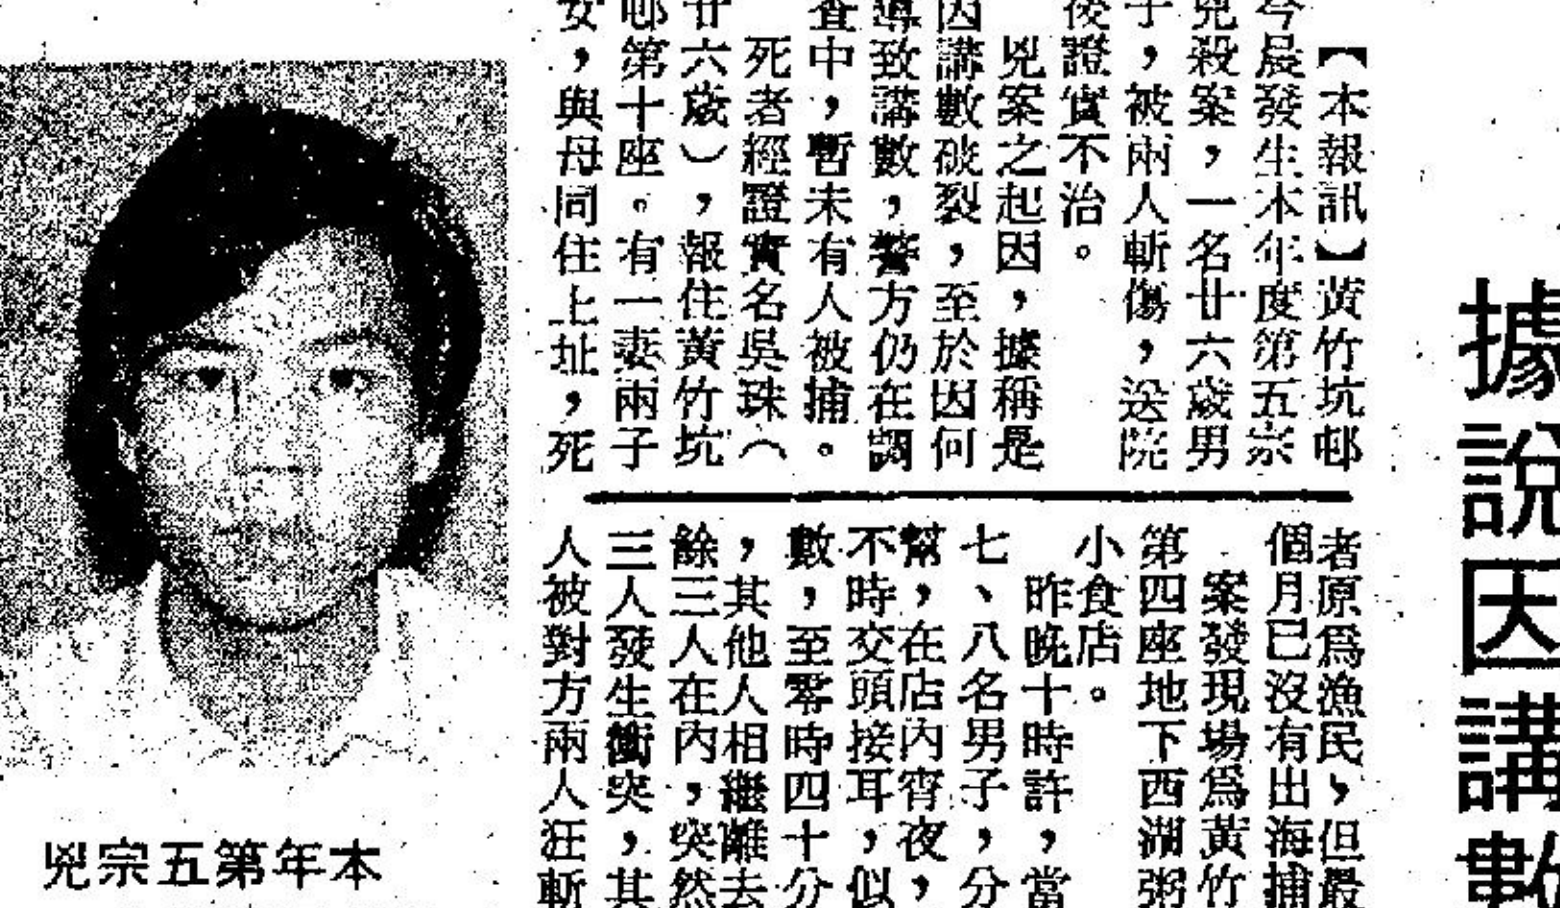 據說因講數
【本報訊】黃竹坑邨
今晨發生本年度第五宗
兇殺案,一名廿六歲男
子,被兩人斬傷,送院
後證實不治。
兇案之起因,據稱是
因講數破裂,至於因何
導致講數,警方仍在調
查中,暫未有人被捕。
死者經證實名吳珠(
廿六歲),報住黃竹坑
邨第十座。有一妻兩子
女,與母同住上址,死
者原爲漁民,但最
個月已沒有出海捕
案發現場爲黃竹
第四座地下西湖粥
小食店。
昨晚十時許,當
七、八名男子,分
幫,在店內宵夜,
不時交頭接耳,似
數,至零時四十分
,其他人相繼離去
餘三人在內,突然
三人發生衝突,其
人被對方兩人狂斬
本年第五宗兇